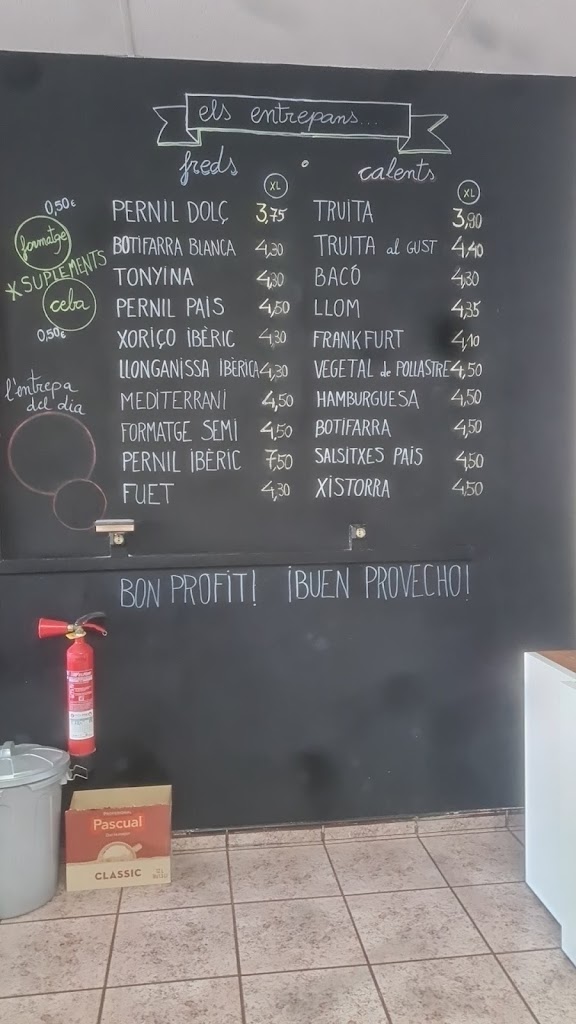 els entrepans...
freds • calents
XL
XL
0,50€
formatge
*SUPLEMENTS
ceba
0,50€
l'entrepa
del dia
PERNIL DOLÇ 3,75
BOTIFARRA BLANCA 4,30
TONYINA 4,30
PERNIL PAIS 4,50
XORIÇO IBÈRIC 4,30
LLONGANISSA IBÈRICA 4,30
MEDITERRANI 4,50
FORMATGE SEMI 4,50
PERNIL IBÈRIC 7,50
FUET 4,30
TRUITA 3,90
TRUITA al GUST 4,40
BACÓ 4,30
LLOM 4,35
FRANKFURT 4,10
VEGETAL de POLLASTRE 4,50
HAMBURGUESA 4,50
BOTIFARRA 4,50
SALSITXES PAIS 4,50
XISTORRA 4,50
BON PROFIT! ¡BUEN PROVECHO!
Pascual
CLASSIC